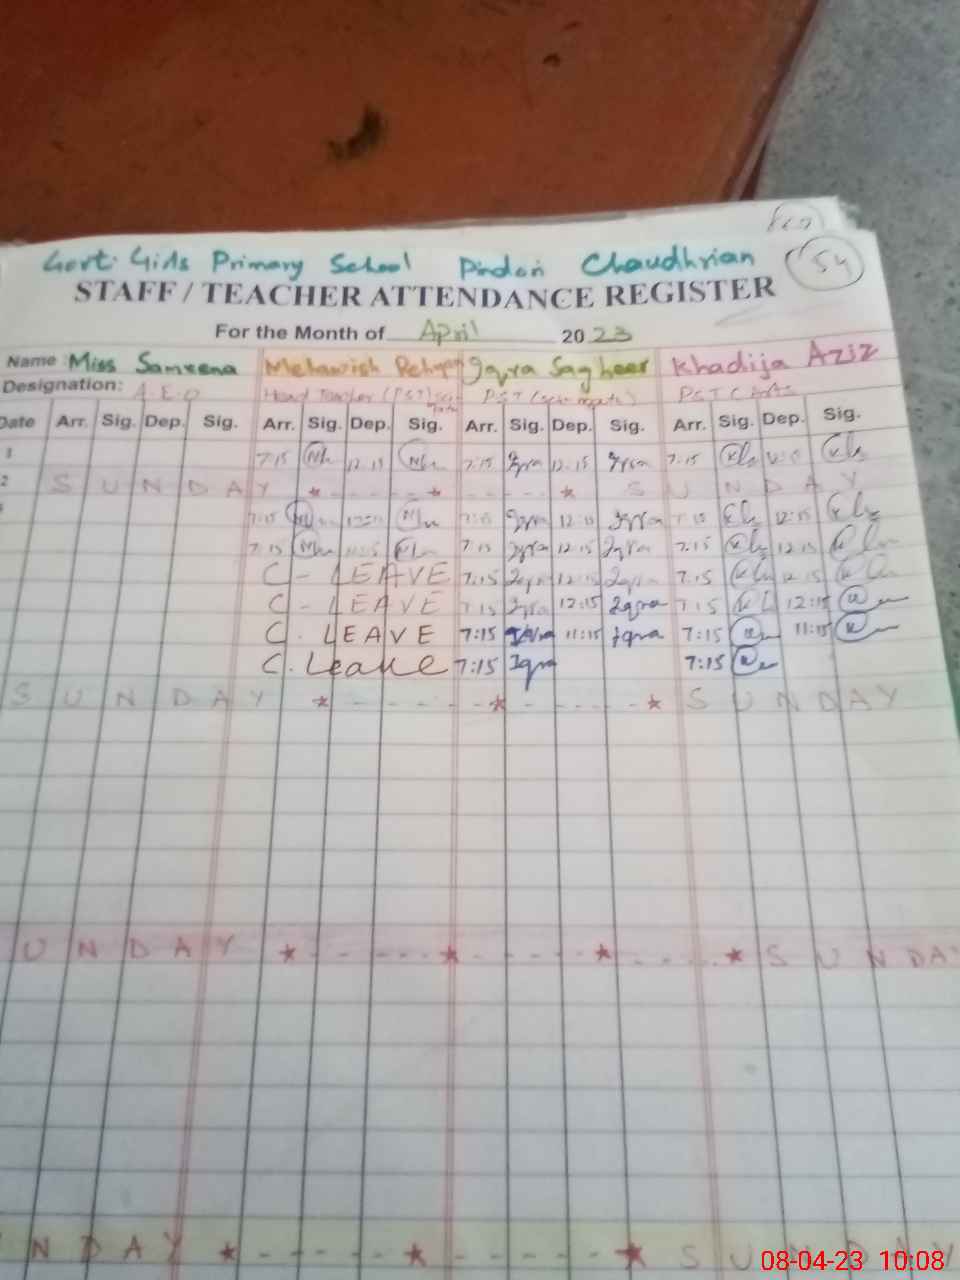 54
Govt. Girls Primary School Pindori Chaudhrian
STAFF / TEACHER ATTENDANCE REGISTER
For the Month of April 2023
Name : Miss Samreena Mehawish Iqra Sagheer Khadija Aziz
Designation: A.E.O Head Teacher (PST) PST PST (Arts)
Date Arr. Sig. Dep. Sig. Arr. Sig. Dep. Sig. Arr. Sig. Dep. Sig. Arr. Sig. Dep. Sig.
1 7:15 12:15 7:15 Iqra 12:15 Iqra 7:15
2 SUNDAY * - - - - - * - - - - - * SUNDAY
7:15 7:15 Iqra 12:15 Iqra 7:15 12:15
7:15 7:15 Iqra 12:15 Iqra 7:15 12:15
C - LEAVE 7:15 Iqra 12:15 Iqra 7:15 12:15
C - LEAVE 7:15 Iqra 12:15 Iqra 7:15 12:15
C. LEAVE 7:15 Iqra 11:15 Iqra 7:15 11:15
C. Leave 7:15 Iqra 7:15
SUNDAY * - - - - - * - - - - - * SUNDAY
UNDAY * - - - - - * - - - - - * - - - - * SUNDAY
NDAY * - - - - - * - - - - - * SUNDAY
08-04-23 10:08